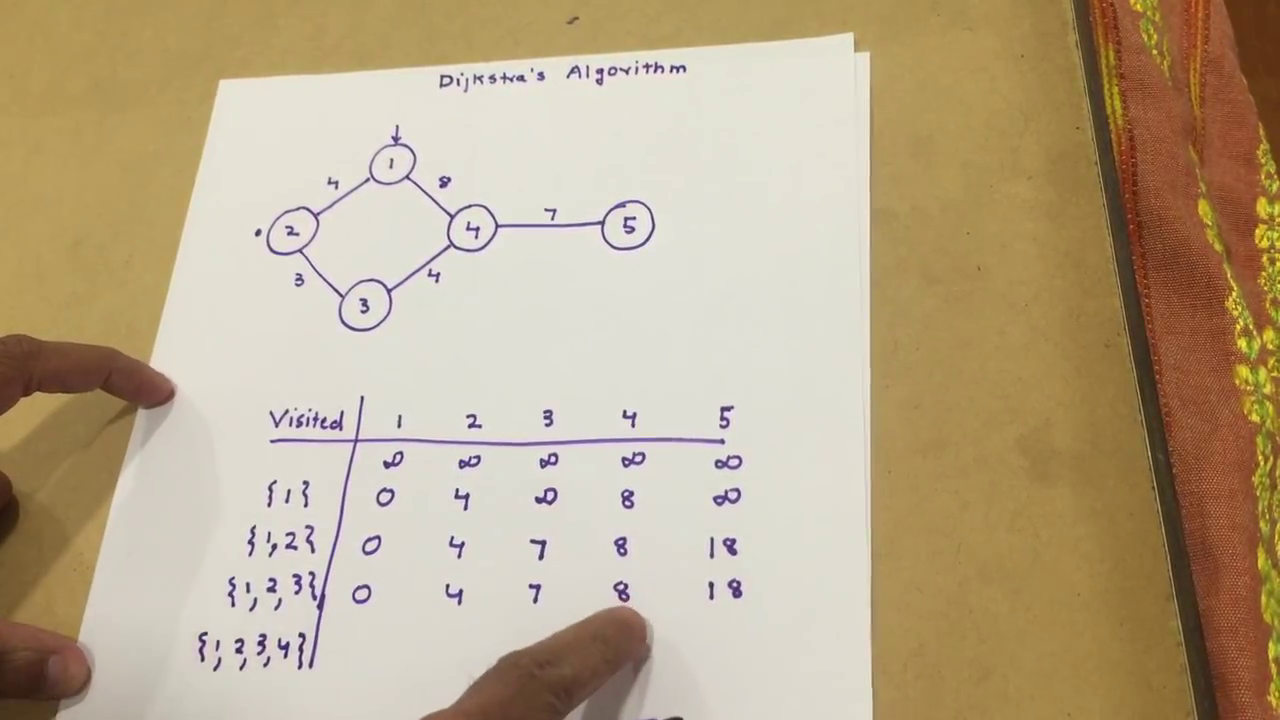 Dijkstra's Algorithm
1
4 8
2 4 7 5
3 4
3
Visited 1 2 3 4 5
∞ ∞ ∞ ∞ ∞
{1} 0 4 ∞ 8 ∞
{1,2} 0 4 7 8 18
{1,2,3} 0 4 7 8 18
{1,2,3,4}